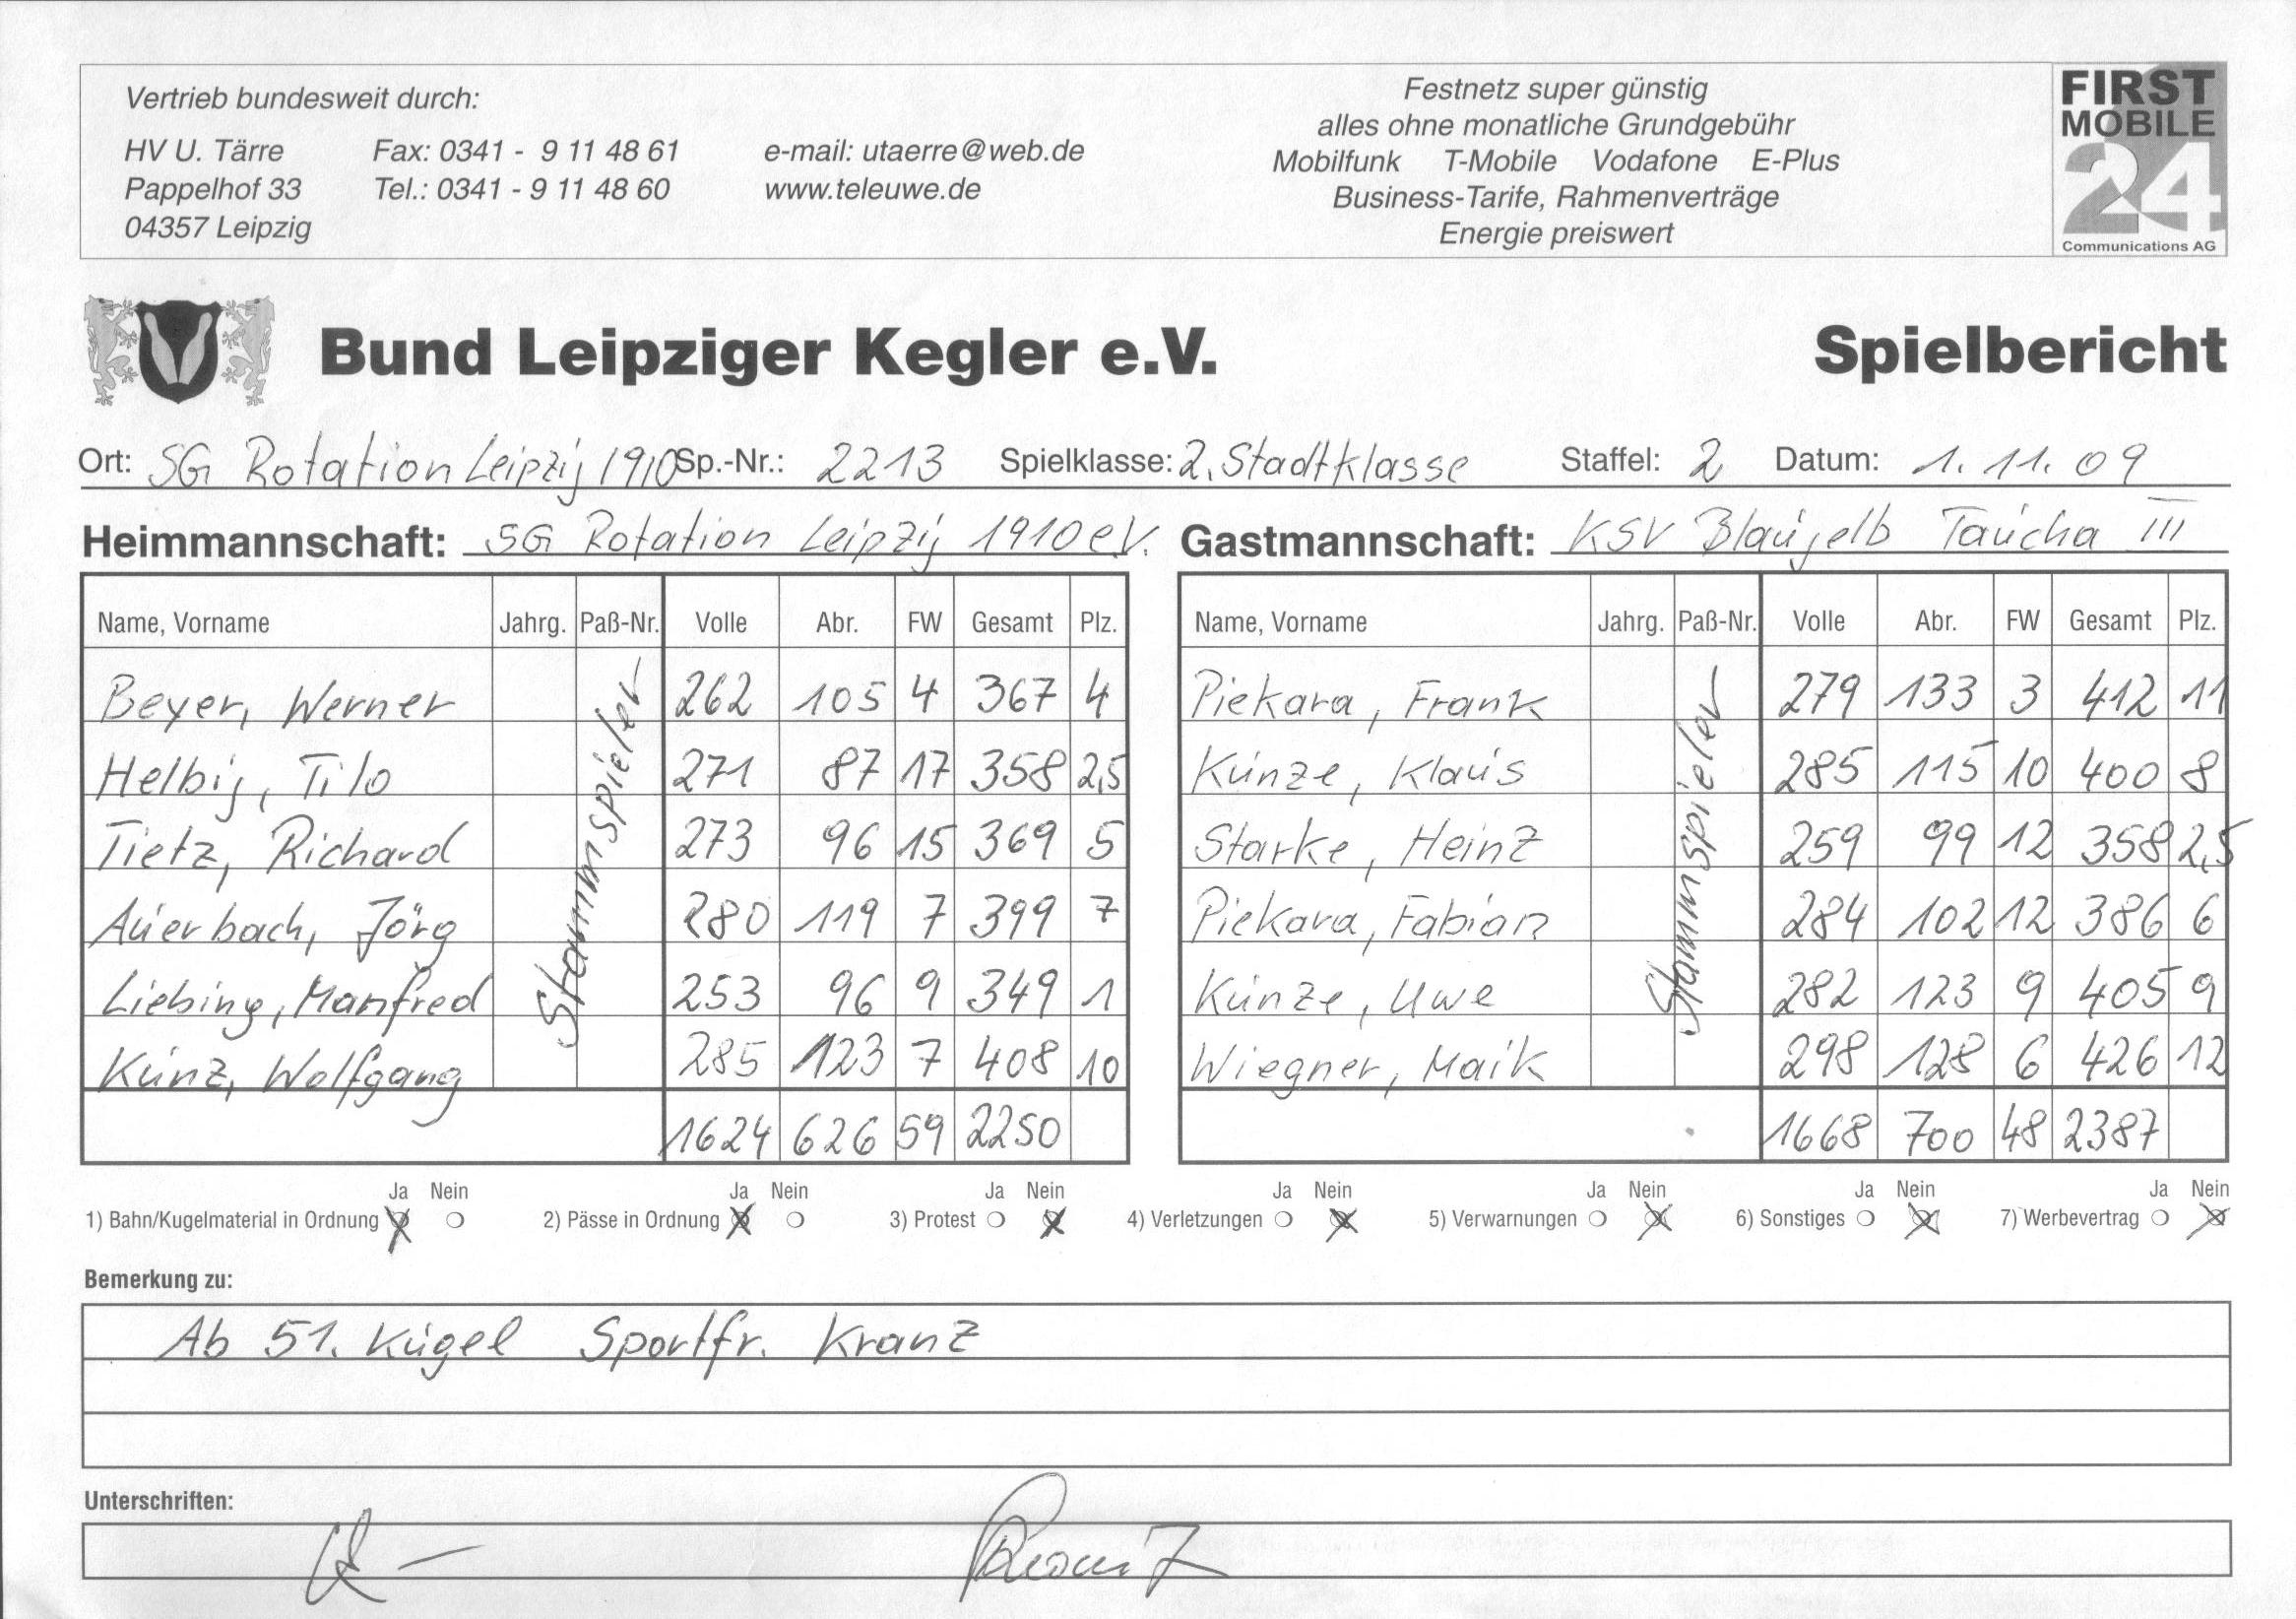 Vertrieb bundesweit durch:
HV U. Tärre Fax: 0341 - 9 11 48 61 e-mail: utaerre@web.de
Pappelhof 33 Tel.: 0341 - 9 11 48 60 www.teleuwe.de
04357 Leipzig
Festnetz super günstig
alles ohne monatliche Grundgebühr
Mobilfunk T-Mobile Vodafone E-Plus
Business-Tarife, Rahmenverträge
Energie preiswert
FIRST
MOBILE
24
Communications AG
Bund Leipziger Kegler e.V. Spielbericht
Ort: SG Rotation Leipzig 1910 Sp.-Nr.: 2213 Spielklasse: 2. Stadtklasse Staffel: 2 Datum: 1. 11. 09
Heimmannschaft: SG Rotation Leipzig 1910 e.V. Gastmannschaft: KSV Blaugelb Taucha III
Name, Vorname Jahrg. Paß-Nr. Volle Abr. FW Gesamt Plz.
Beyer, Werner 262 105 4 367 4
Helbig, Tilo 271 87 17 358 2,5
Tietz, Richard 273 96 15 369 5
Auerbach, Jörg 280 119 7 399 7
Liebing, Manfred 253 96 9 349 1
Kunz, Wolfgang 285 123 7 408 10
Stammspieler
1624 626 59 2250
Name, Vorname Jahrg. Paß-Nr. Volle Abr. FW Gesamt Plz.
Piekara, Frank 279 133 3 412 11
Kunze, Klaus 285 115 10 400 8
Starke, Heinz 259 99 12 358 2,5
Piekara, Fabian 284 102 12 386 6
Kunze, Uwe 282 123 9 405 9
Wiegner, Maik 298 128 6 426 12
Stammspieler
1668 700 48 2387
Ja Nein Ja Nein Ja Nein Ja Nein Ja Nein Ja Nein Ja Nein
1) Bahn/Kugelmaterial in Ordnung 2) Pässe in Ordnung 3) Protest 4) Verletzungen 5) Verwarnungen 6) Sonstiges 7) Werbevertrag
Bemerkung zu:
Ab 51. Kugel Sportfr. Kranz
Unterschriften: